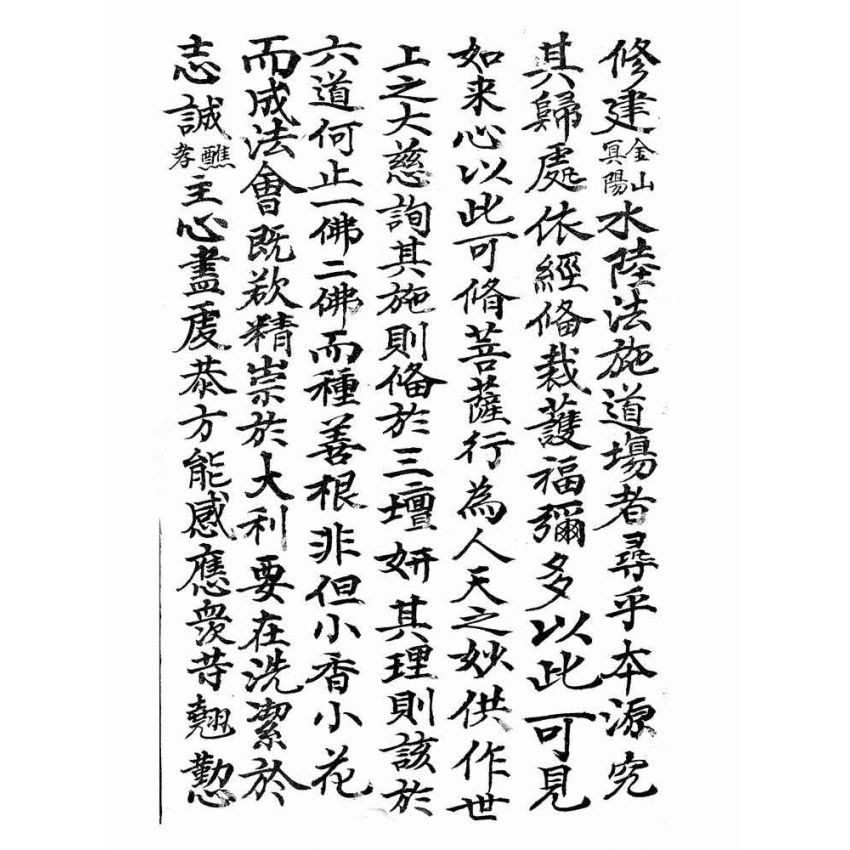 修建金山冥陽水陸法施道場者尋乎本源究
其歸處依經俻裁護福彌多以此可見
如来心以此可脩菩薩行為人天之妙供作世
上之大慈詢其施則俻於三壇妍其理則該於
六道何止一佛二佛而種善根非但小香小花
而成法會既欲精崇於大利要在洗潔於
志誠醮孝主心盡虔恭方能感應眾等翹懃